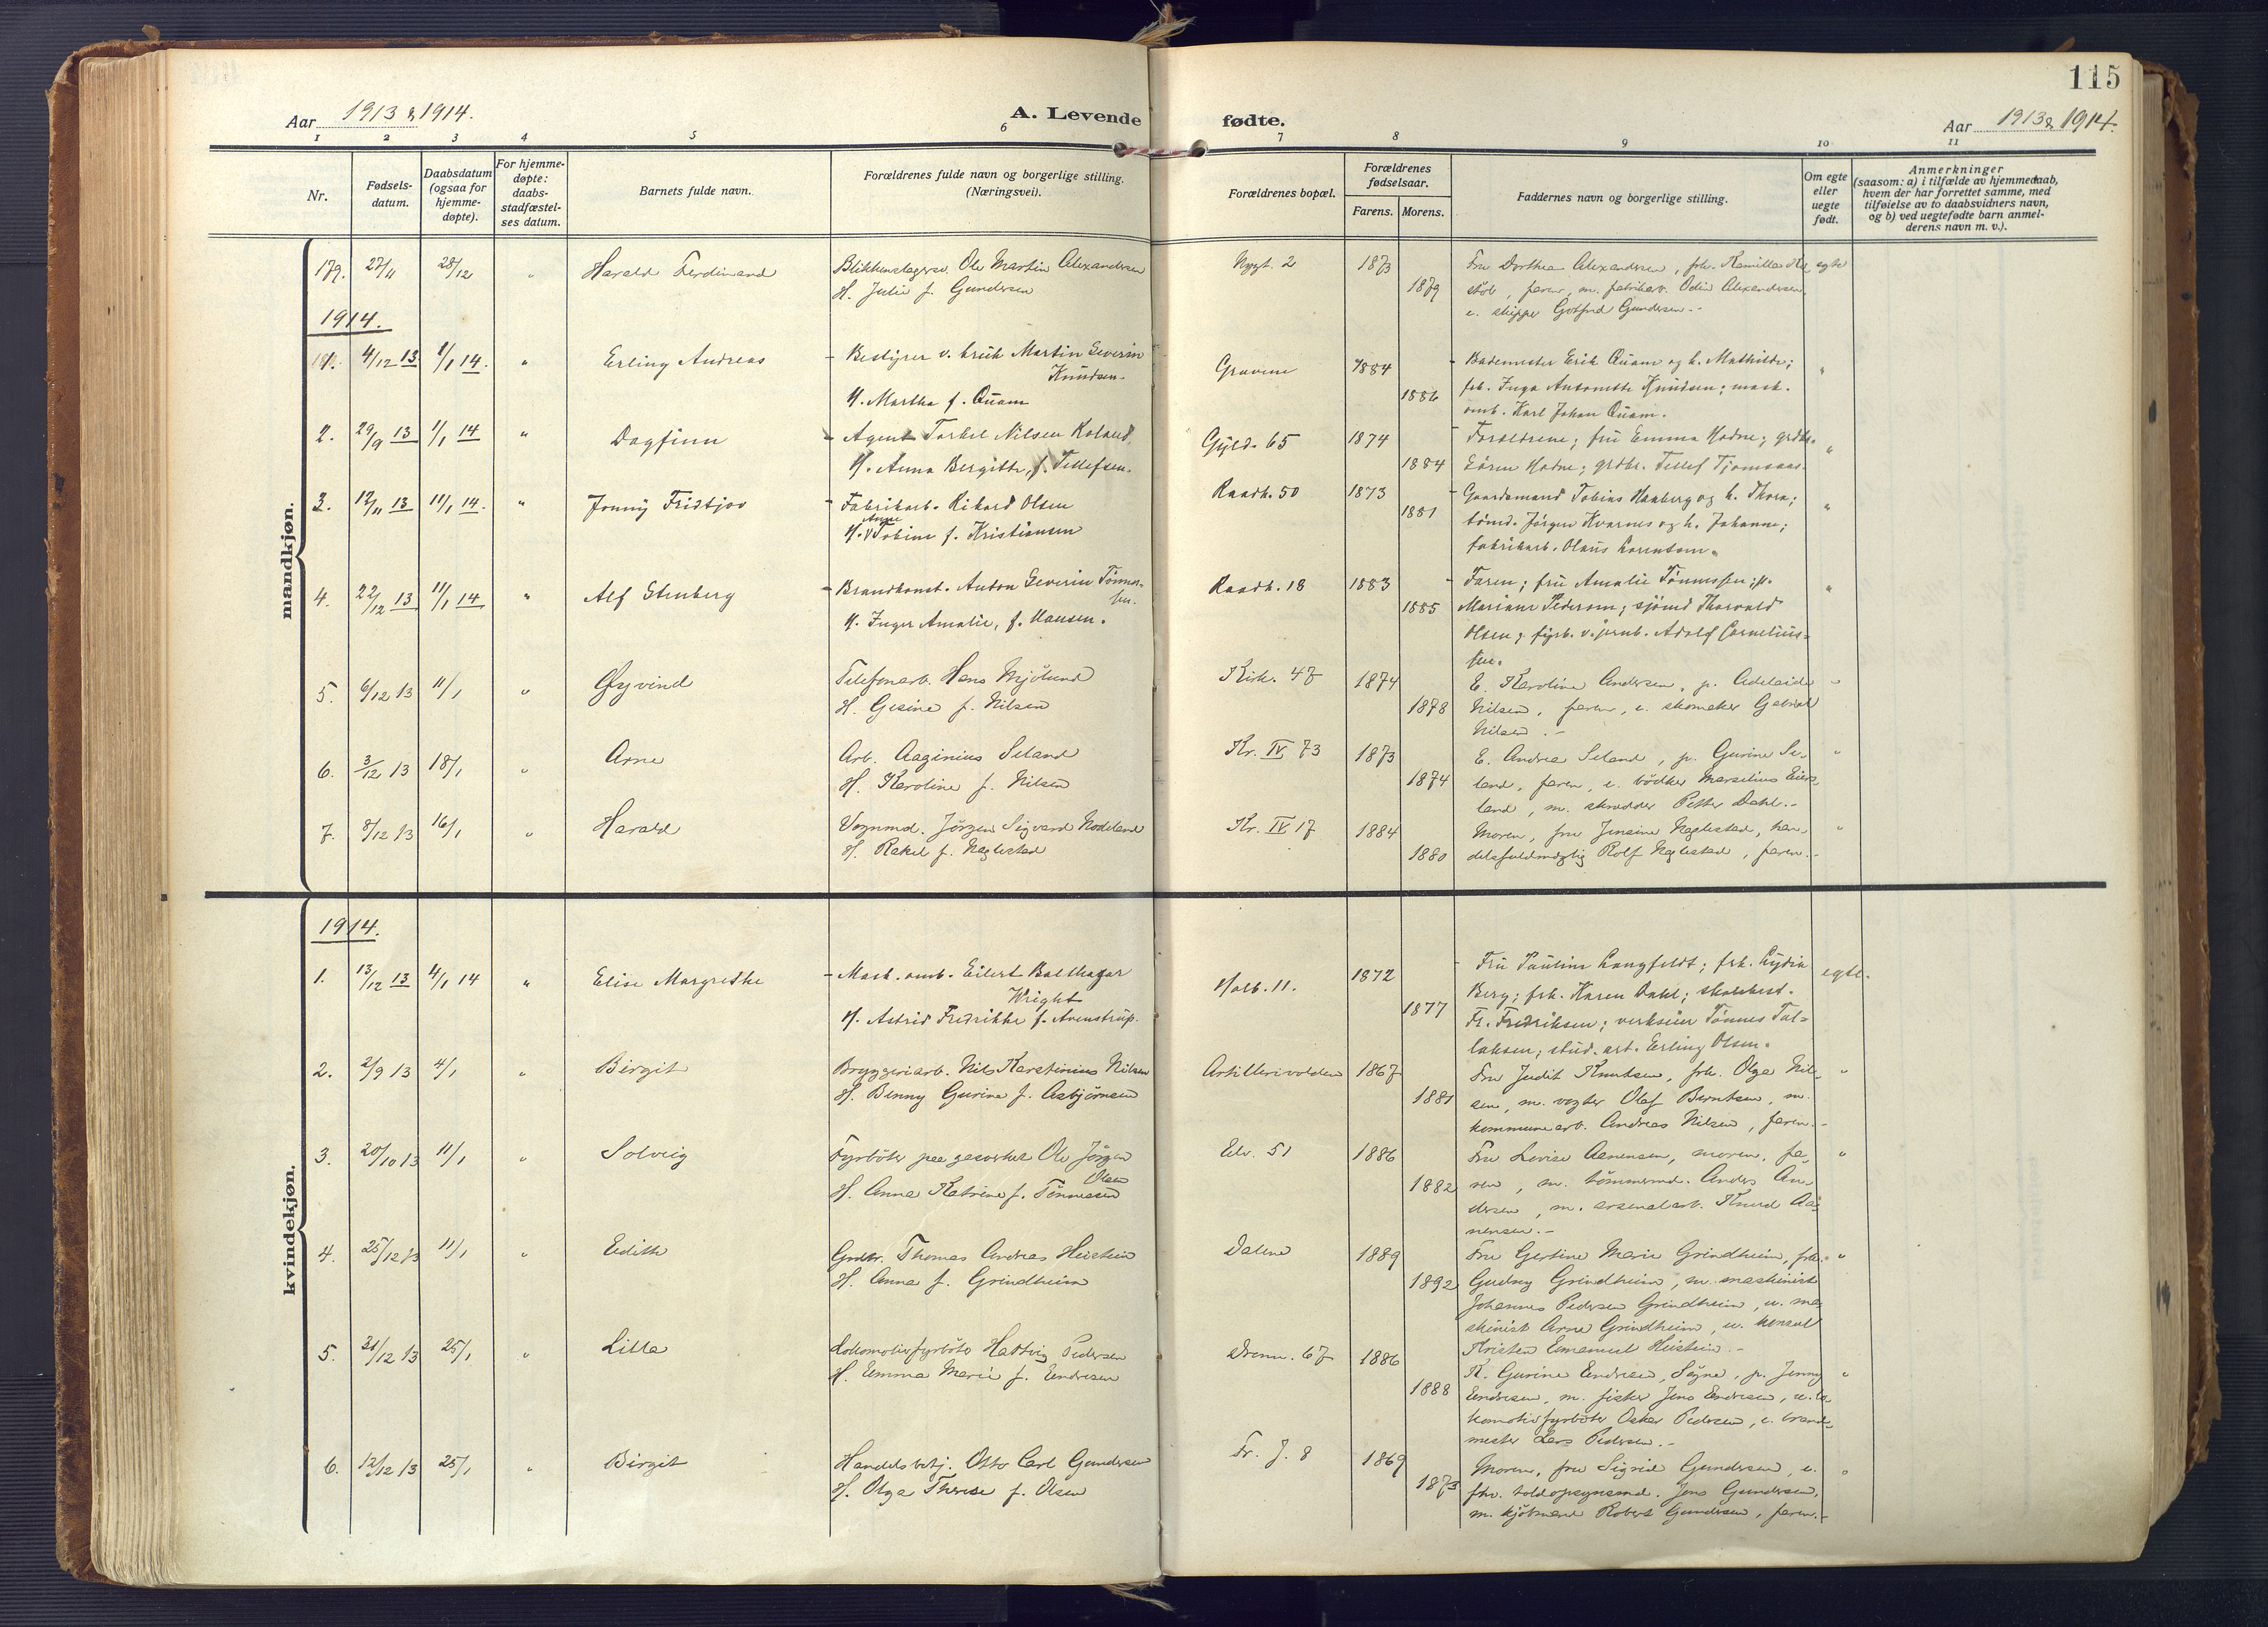 115
Aar 1913 & 1914.
A. Levende fødte.
Aar 1913 & 1914.
1 2 3 4 5 6 7 8 9 10 11
Nr.
Fødsels-
datum.
Daabsdatum
(ogsaa for
hjemme-
døpte).
For hjemme-
døpte:
daabs-
stadfæstel-
ses datum.
Barnets fulde navn.
Forældrenes fulde navn og borgerlige stilling.
(Næringsvei).
Forældrenes bopæl.
Forældrenes
fødselsaar.
Farens. Morens.
Faddernes navn og borgerlige stilling.
Om egte
eller
uegte
født.
Anmerkninger
(saasom: a) i tilfælde av hjemmedaab,
hvem der har forrettet samme, med
tilføielse av to daabsvidners navn,
og b) ved uegtefødte barn anmel-
derens navn m. v.).
mandkjøn.
179. 27/11 28/12 " Harald Ferdinand Blikkenslagersv. Ole Martin Alexandersen Nygt. 2 1873 Fru Dorthea Alexandersen, frk. Kamilla egte
H. Julie f. Gundersen 1879 faren, m. fabrikarb. Odin Alexandersen,
u. skipper Gotfred Gundersen.-
1914.
1. 4/12 13 1/1 14. " Erling Andreas - Bestyrer v. bruk Martin Severin Gravene 1884 - Bademester Erik Quam og h. Mathilde; "
Knudsen.
H. Martha f. Quam 1886 frk. Inga Antonette Knudsen; mask.
omb. Karl Johan Quam.
2. 29/9 13 1/1 14 " Dagfinn - Agent Torkel Nilsen Roland, Gyld. 65 1874 - Forældrene; fru Emma Hodne; grdbr. "
H. Anna Bergitte, f. Tellefsen. 1884 Søren Hodne; grdbr. Tellef Tjomsaas.
3. 12/11 13 11/1 14. " Jonny Fridtjov - Fabrikarb. Rikard Olsen Raadh. 50 1873 - Gaardsmand Tobias Haaberg og h. Thora; "
Anne
H. Tobine f. Kristiansen 1881 tømd. Jørgen Kvarnes og h. Johanne;
fabrikarb. Olaus Lorentsen.
4. 22/12 13 11/1 14 " Alf Stenberg - Brandkonst. Anton Severin Tønnes- Raadh. 18 1883 - Faren; fru Amalie Tønnessen; p. "
sen.
H. Inger Amalie, f. Hansen. 1885 Mariane Pedersen; sjømd Thorvald
Olsen; fyrb. v. jernb. Adolf Cornelius-
sen.
5. 6/12 13 11/1 " Øyvind Telefonarb. Hans Mjölund Kirk. 47 1874 E. Karoline Andersen, p. Adelaide "
H. Gesine f. Nilsen 1878 Nilsen, faren, u. skomaker Gabriel
Nilsen.-
6. 3/12 13 18/1 " Arne Arb. Aaginius Seland Kr. IV 73 1873 E. Andrea Seland, p. Gurine Se- "
H. Karoline f. Nilsen 1874 land, faren, u. bödker Marselius Eiers-
land, m. skrædder Petter Dahl.-
7. 8/12 13 16/1 " Harald Vognmd. Jörgen Sigvard Nodeland Kr. IV 17 1884 Moren, fru Jensine Naglestad, han- "
H. Rakel f. Naglestad 1880 delsfuldmægtig Rolf Naglestad, faren.-
kvindekjøn.
1914.
1. 13/12 13 4/1 14 " Elise Margrethe - Mask. omb. Eilert Balthazar Holb. 11. 1872 - Fru Pauline Langfeldt; frk. Lydia egte.
Wright
H. Astrid Fredrikke f. Avenstrup. 1877 Berg; frk. Karen Dahl; skolebest.
Fr. Fredriksen; verkseier Tönnes Tal-
laksen; stud. art. Erling Olsen.
2. 2/9 13 4/1 " Birgit Bryggeriarb. Nils Karstinius Nilsen Artillerivolden 1867 Fru Judit Knutsen, frk. Olga Nil- "
H. Benny Gurine f. Asbjörnsen 1881 sen, m. vogter Olaf Berntsen, m.
kommunearb. Andreas Nilsen, faren.-
3. 20/10 13 11/1 " Solveig Fyrböter paa gasverket Ole Jörgen Elv. 51 1886 Fru Lovise Aanensen, moren, fa- "
Olsen
H. Anna Katrine f. Tönnessen 1882 ren, m. tömmermd. Anders An-
dersen, m. arsenalarb. Knud Aa-
nensen.-
4. 25/12 13 11/1 " Edith Grdbr. Thomas Andreas Heistein Dalene 1889 Fru Gertine Marie Grindheim, frk. "
H. Anna f. Grindheim 1892 Gudny Grindheim, m. maskinist
Johannes Pedersen Grindheim, u. ma-
skinist Arne Grindheim, u. konsul
Kristen Emanuel Heistein.-
5. 31/12 13 25/1 " Lilla Lokomotivfyrböter Hartvig Pedersen Dronn. 67 1886 K. Gurine Endresen, Søgne, p. Jenny "
H. Emma Marie f. Endresen 1888 Endresen, m. fisker Jens Endresen, u. lo-
komotivfyrböter Oskar Pedersen, u. brand-
mester Lars Pedersen.-
6. 12/12 13 25/1 " Birgit Handelsbetj. Otto Carl Gundersen Fr. J. 8 1869 Moren, fru Sigrid Gundersen, u. "
H. Olga Therese f. Olsen 1873 fhv. toldopsynsmd. Jens Gundersen,
m. kjöbmand Robert Gundersen, faren.-